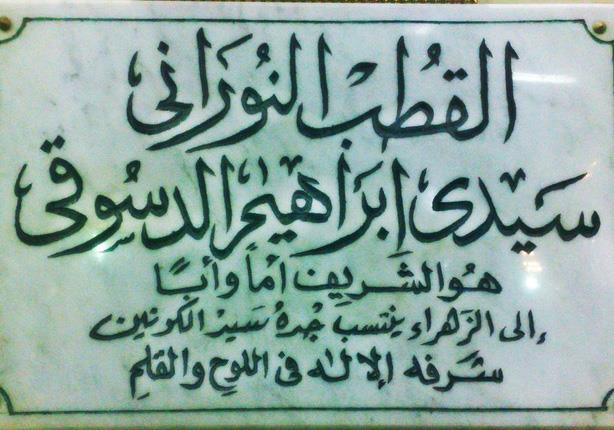 القُطب النُورَانى
سَيّدى إبرَاهيم الدسُوقى
هُو الشَريف أماً وأباً
إلى الزَهراء ينتسب جدهُ سَيد الكونين
شَرفه الإله فى اللوح والقلمِ